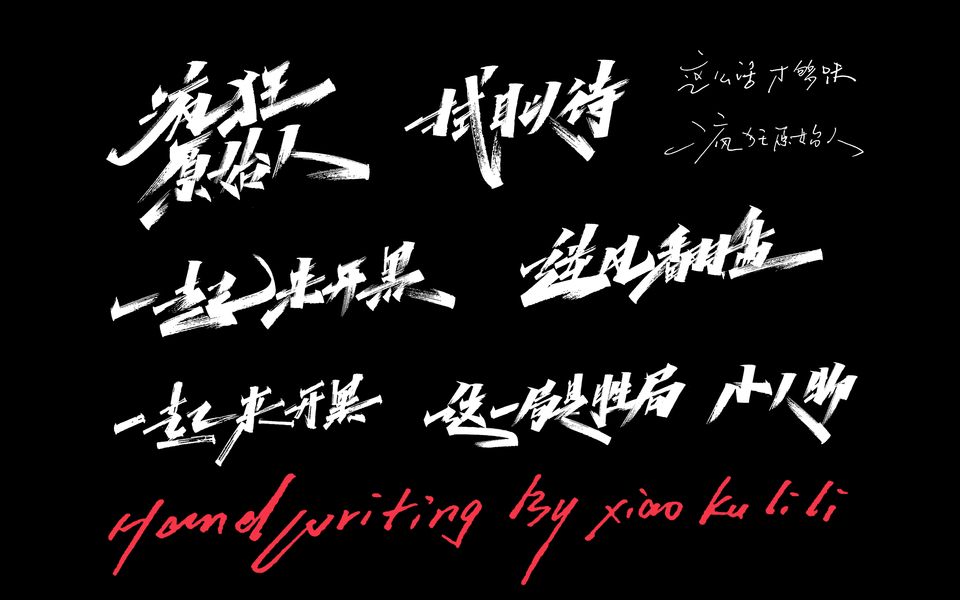 疯狂
原始人
拭目以待
这么活才够味
疯狂原始人
一起来开黑
逆风翻盘
一起来开黑
这一局是胜局
小人
Handwriting By xiao ku li li